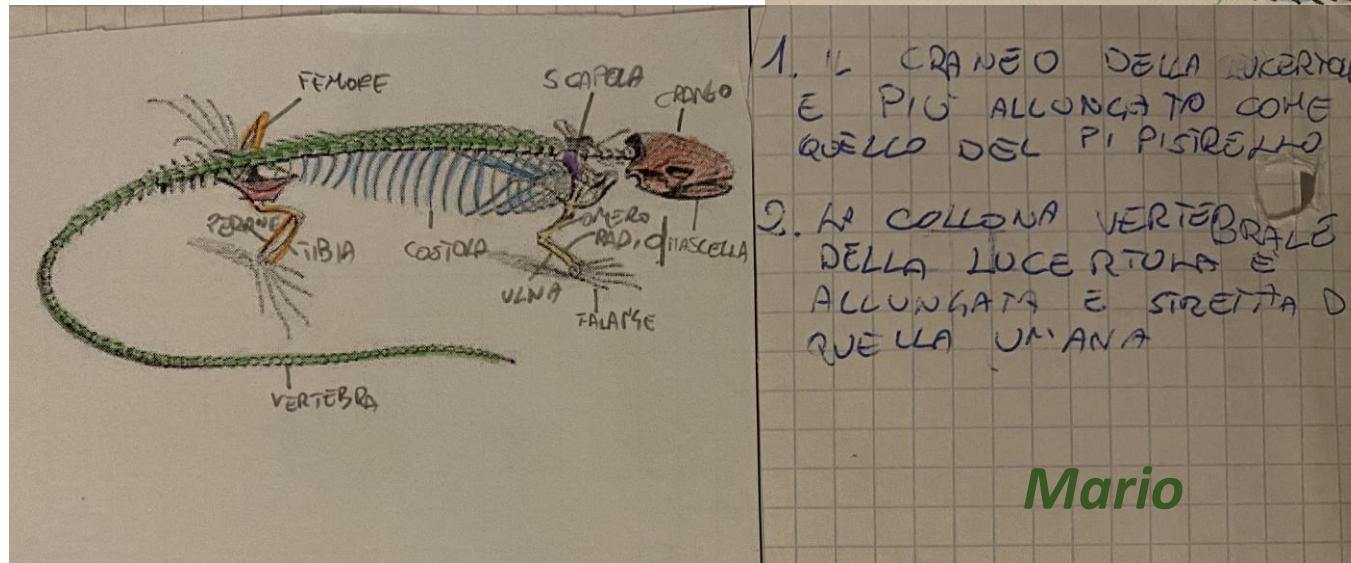 FEMORE
SCAPOLA
CRANEO
PERONE
TIBIA
COSTOLA
OMERO
RADIO
MASCELLA
ULNA
FALANGE
VERTEBRA
1. IL CRANEO DELLA LUCERTOL
E PIÙ ALLUNGATO COME
QUELLO DEL PIPISTRELLO
2. LA COLLONA VERTEBRALE
DELLA LUCERTOLA E
ALLUNGATA E STRETTA D
QUELLA UMANA
Mario